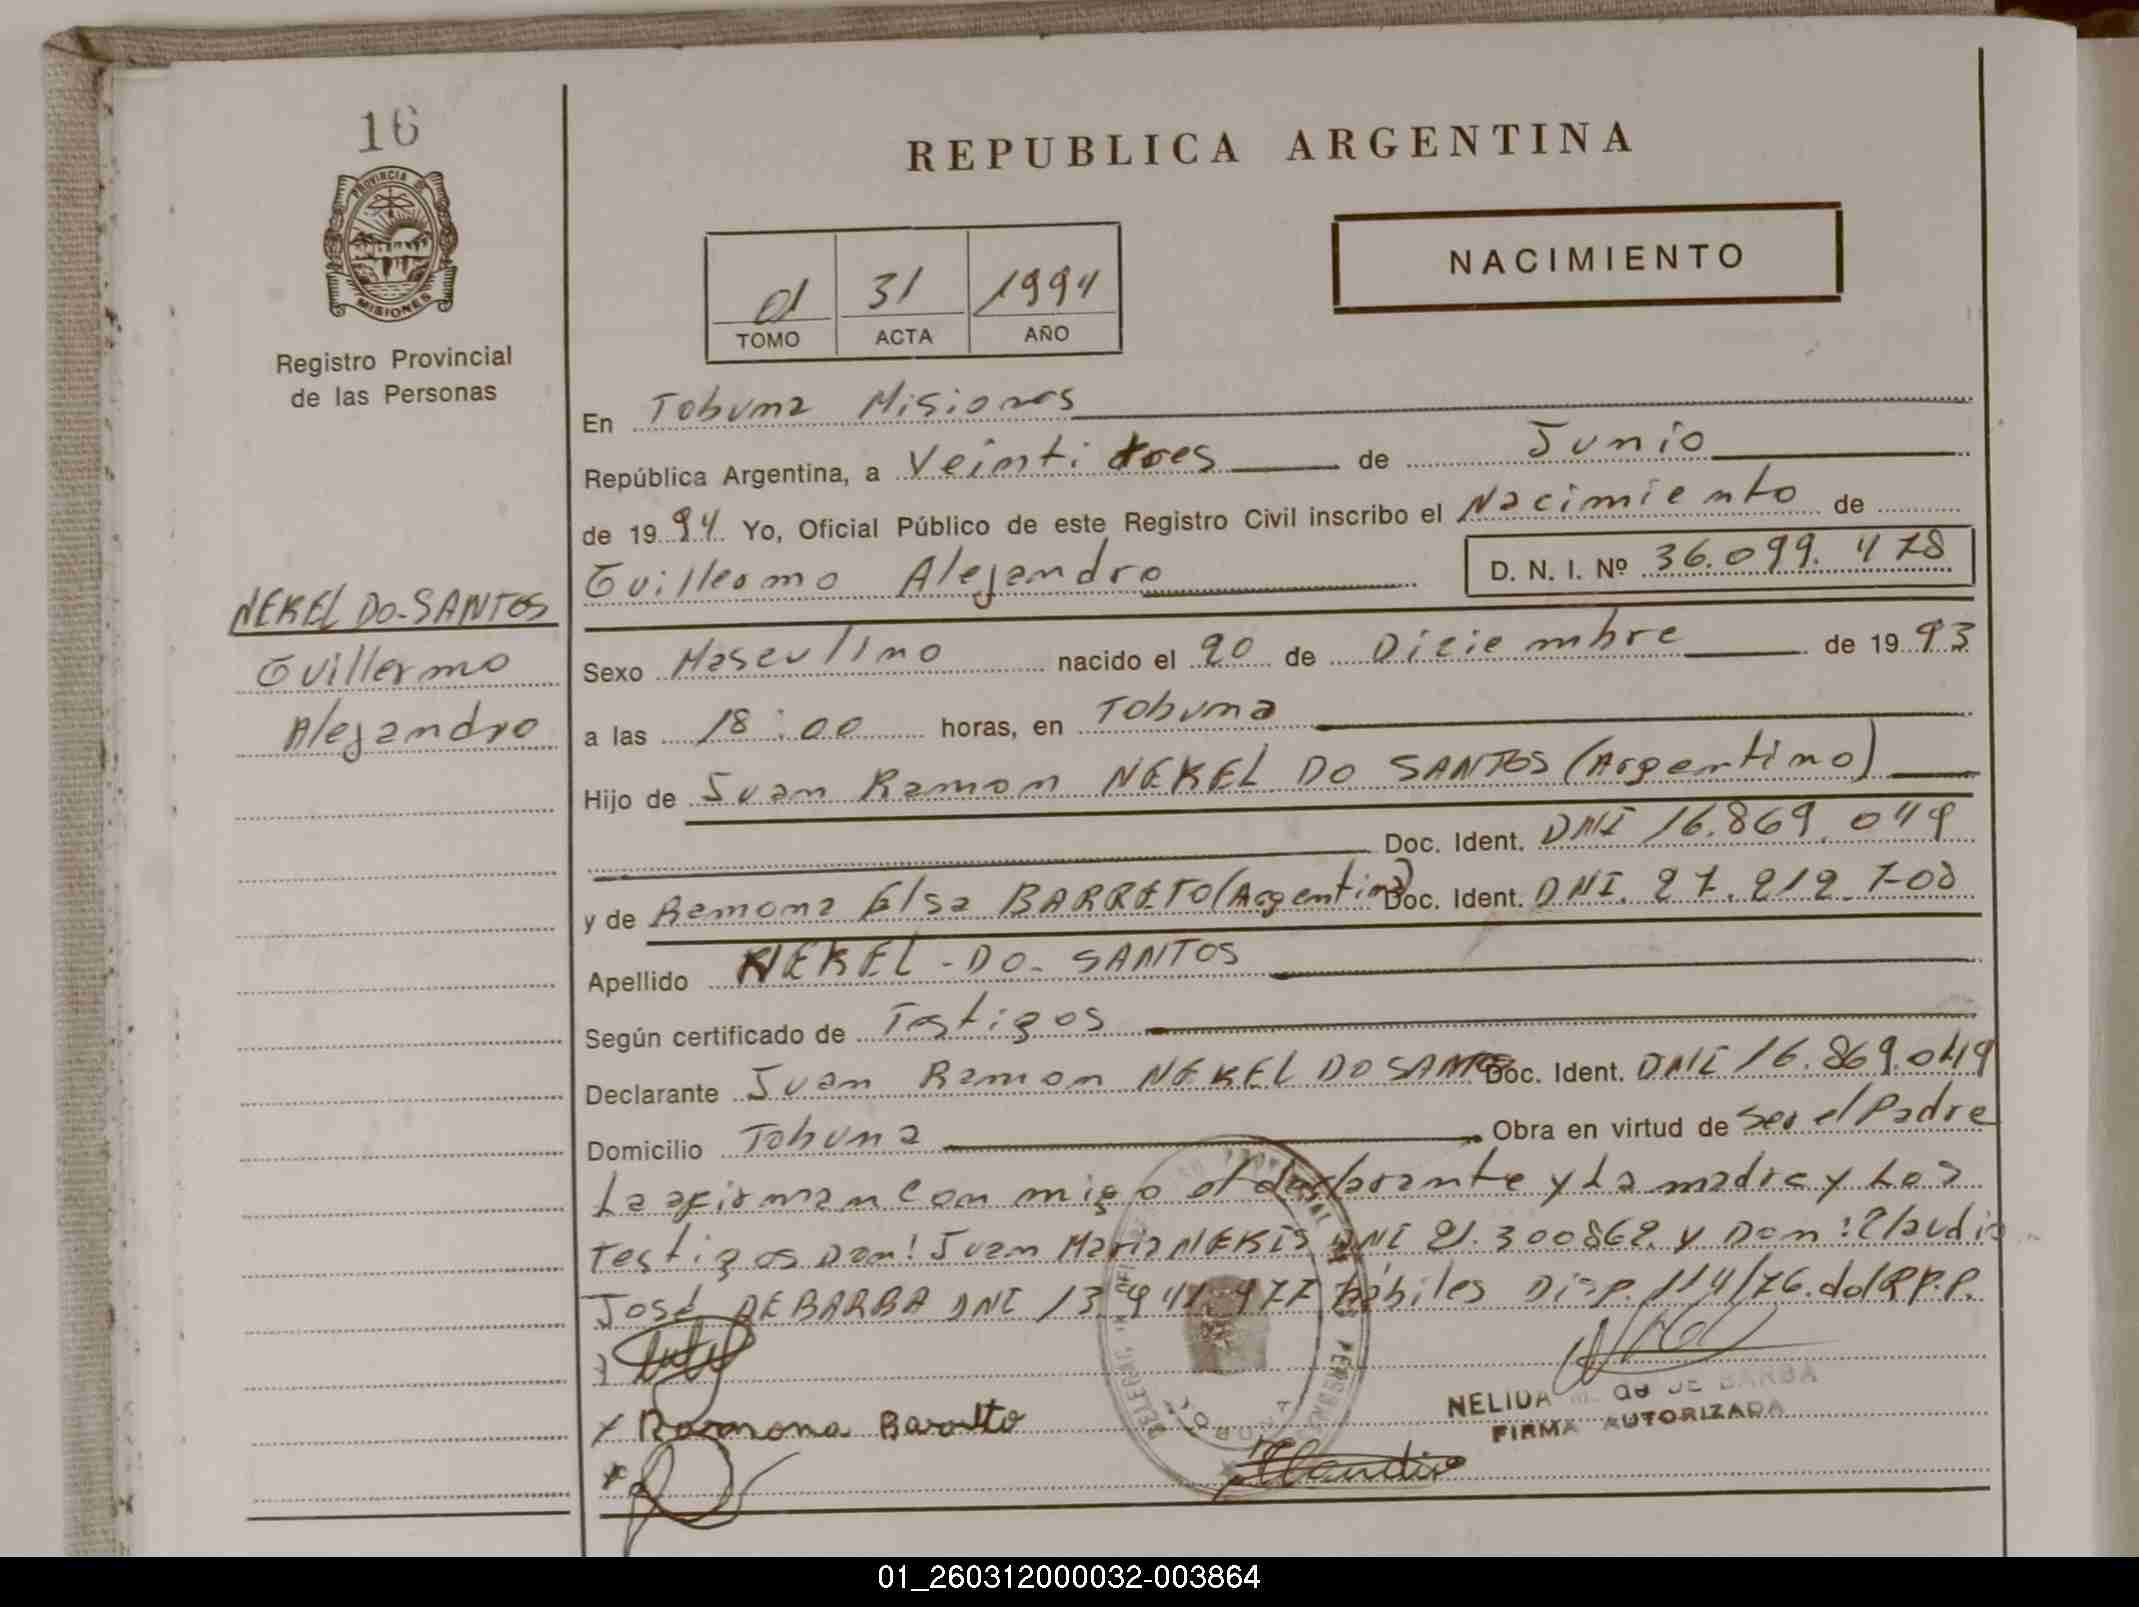 16
PROVINCIA DE
MISIONES
Registro Provincial
de las Personas
NEKEL DO-SANTOS
Guillermo
Alejandro
REPUBLICA ARGENTINA
NACIMIENTO
01 31 1994
TOMO ACTA AÑO
En Tobuna Misiones
República Argentina, a Veinti tres de Junio
de 1994 Yo, Oficial Público de este Registro Civil inscribo el Nacimiento de
Guillermo Alejandro D. N. I. Nº 36.099.478
Sexo Masculino nacido el 20 de Diciembre de 1993
a las 18:00 horas, en Tobuna
Hijo de Juan Ramon NEKEL DO SANTOS (Argentino)
Doc. Ident. DNI 16.869.049
y de Ramona Elsa BARRETO (Argentina) Doc. Ident. DNI. 27.212.708
Apellido NEKEL-DO-SANTOS
Según certificado de Testigos
Declarante Juan Ramon NEKEL DO SANTOS Doc. Ident. DNI 16.869.049
Domicilio Tobuna Obra en virtud de Ser el Padre
La afirman Con migo el declarante y La madre y Los
Testigos Don: Juan Maria DNI 21.300862 y Don: Claudio
José DE BARBA DNI 13.941.477 hábiles Disp. 114/76. del R.P.P.
Ramona Barreto
NELIDA DE BARBA
FIRMA AUTORIZADA
Claudio
01_260312000032-003864